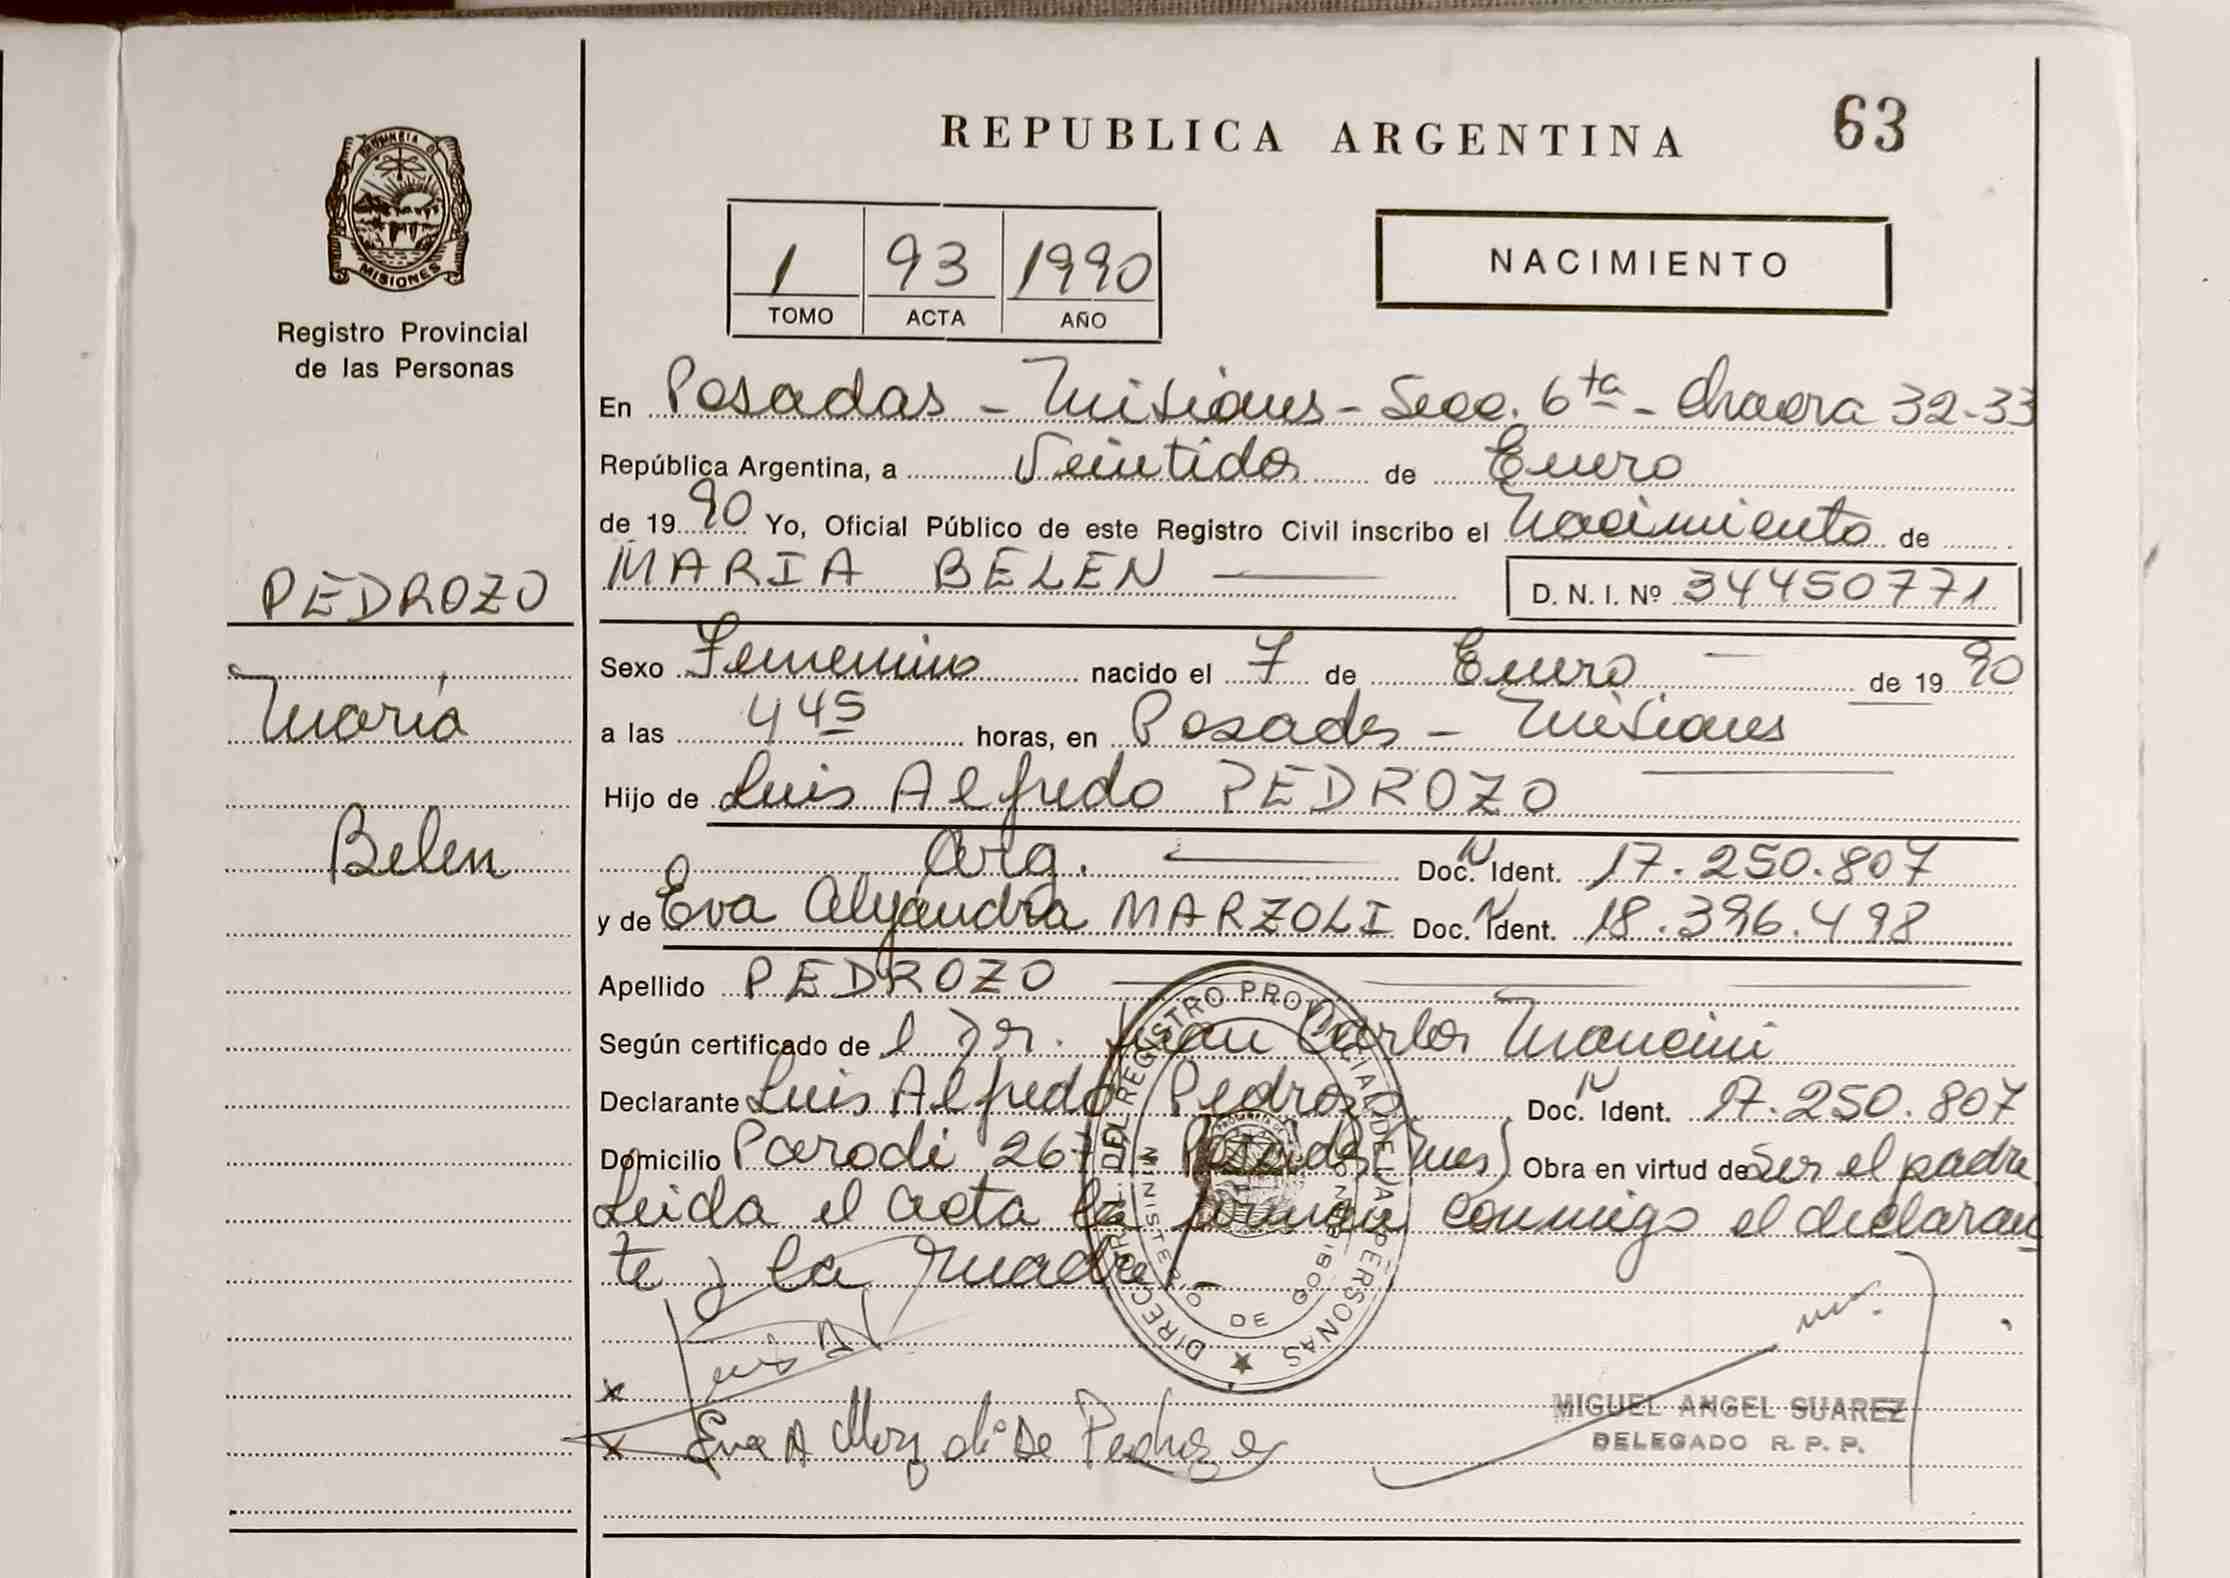 REPUBLICA ARGENTINA
63
PROVINCIA DE MISIONES
Registro Provincial
de las Personas
1 93 1990
TOMO ACTA AÑO
NACIMIENTO
En Posadas - Misiones - Secc. 6ta - Chacra 32-33
República Argentina, a Veintidos de Enero
de 1990 Yo, Oficial Público de este Registro Civil inscribo el Nacimiento de
MARIA BELEN
D. N. I. Nº 34450771
PEDROZO
María
Belen
Sexo Femenino nacido el 7 de Enero de 1990
a las 4 45 horas, en Posadas - Misiones
Hijo de Luis Alfredo PEDROZO
Arg. Doc. N Ident. 17.250.807
y de Eva Alejandra MARZOLI Doc. N Ident. 18.396.498
Apellido PEDROZO
Según certificado de l Dr. Juan Carlos Mancini
Declarante Luis Alfredo Pedrozo Doc. N Ident. 17.250.807
Domicilio Parodi 267 Posadas (Mnes) Obra en virtud de Ser el padre
Leida el acta la firman conmigo el declaran
te y la madre -
DIRECC. GRAL. DEL REGISTRO PROVINCIAL DE LAS PERSONAS
MINISTERIO DE GOBIERNO
x
x Eva A Marzoli de Pedrozo
MIGUEL ANGEL SUAREZ
DELEGADO R. P. P.